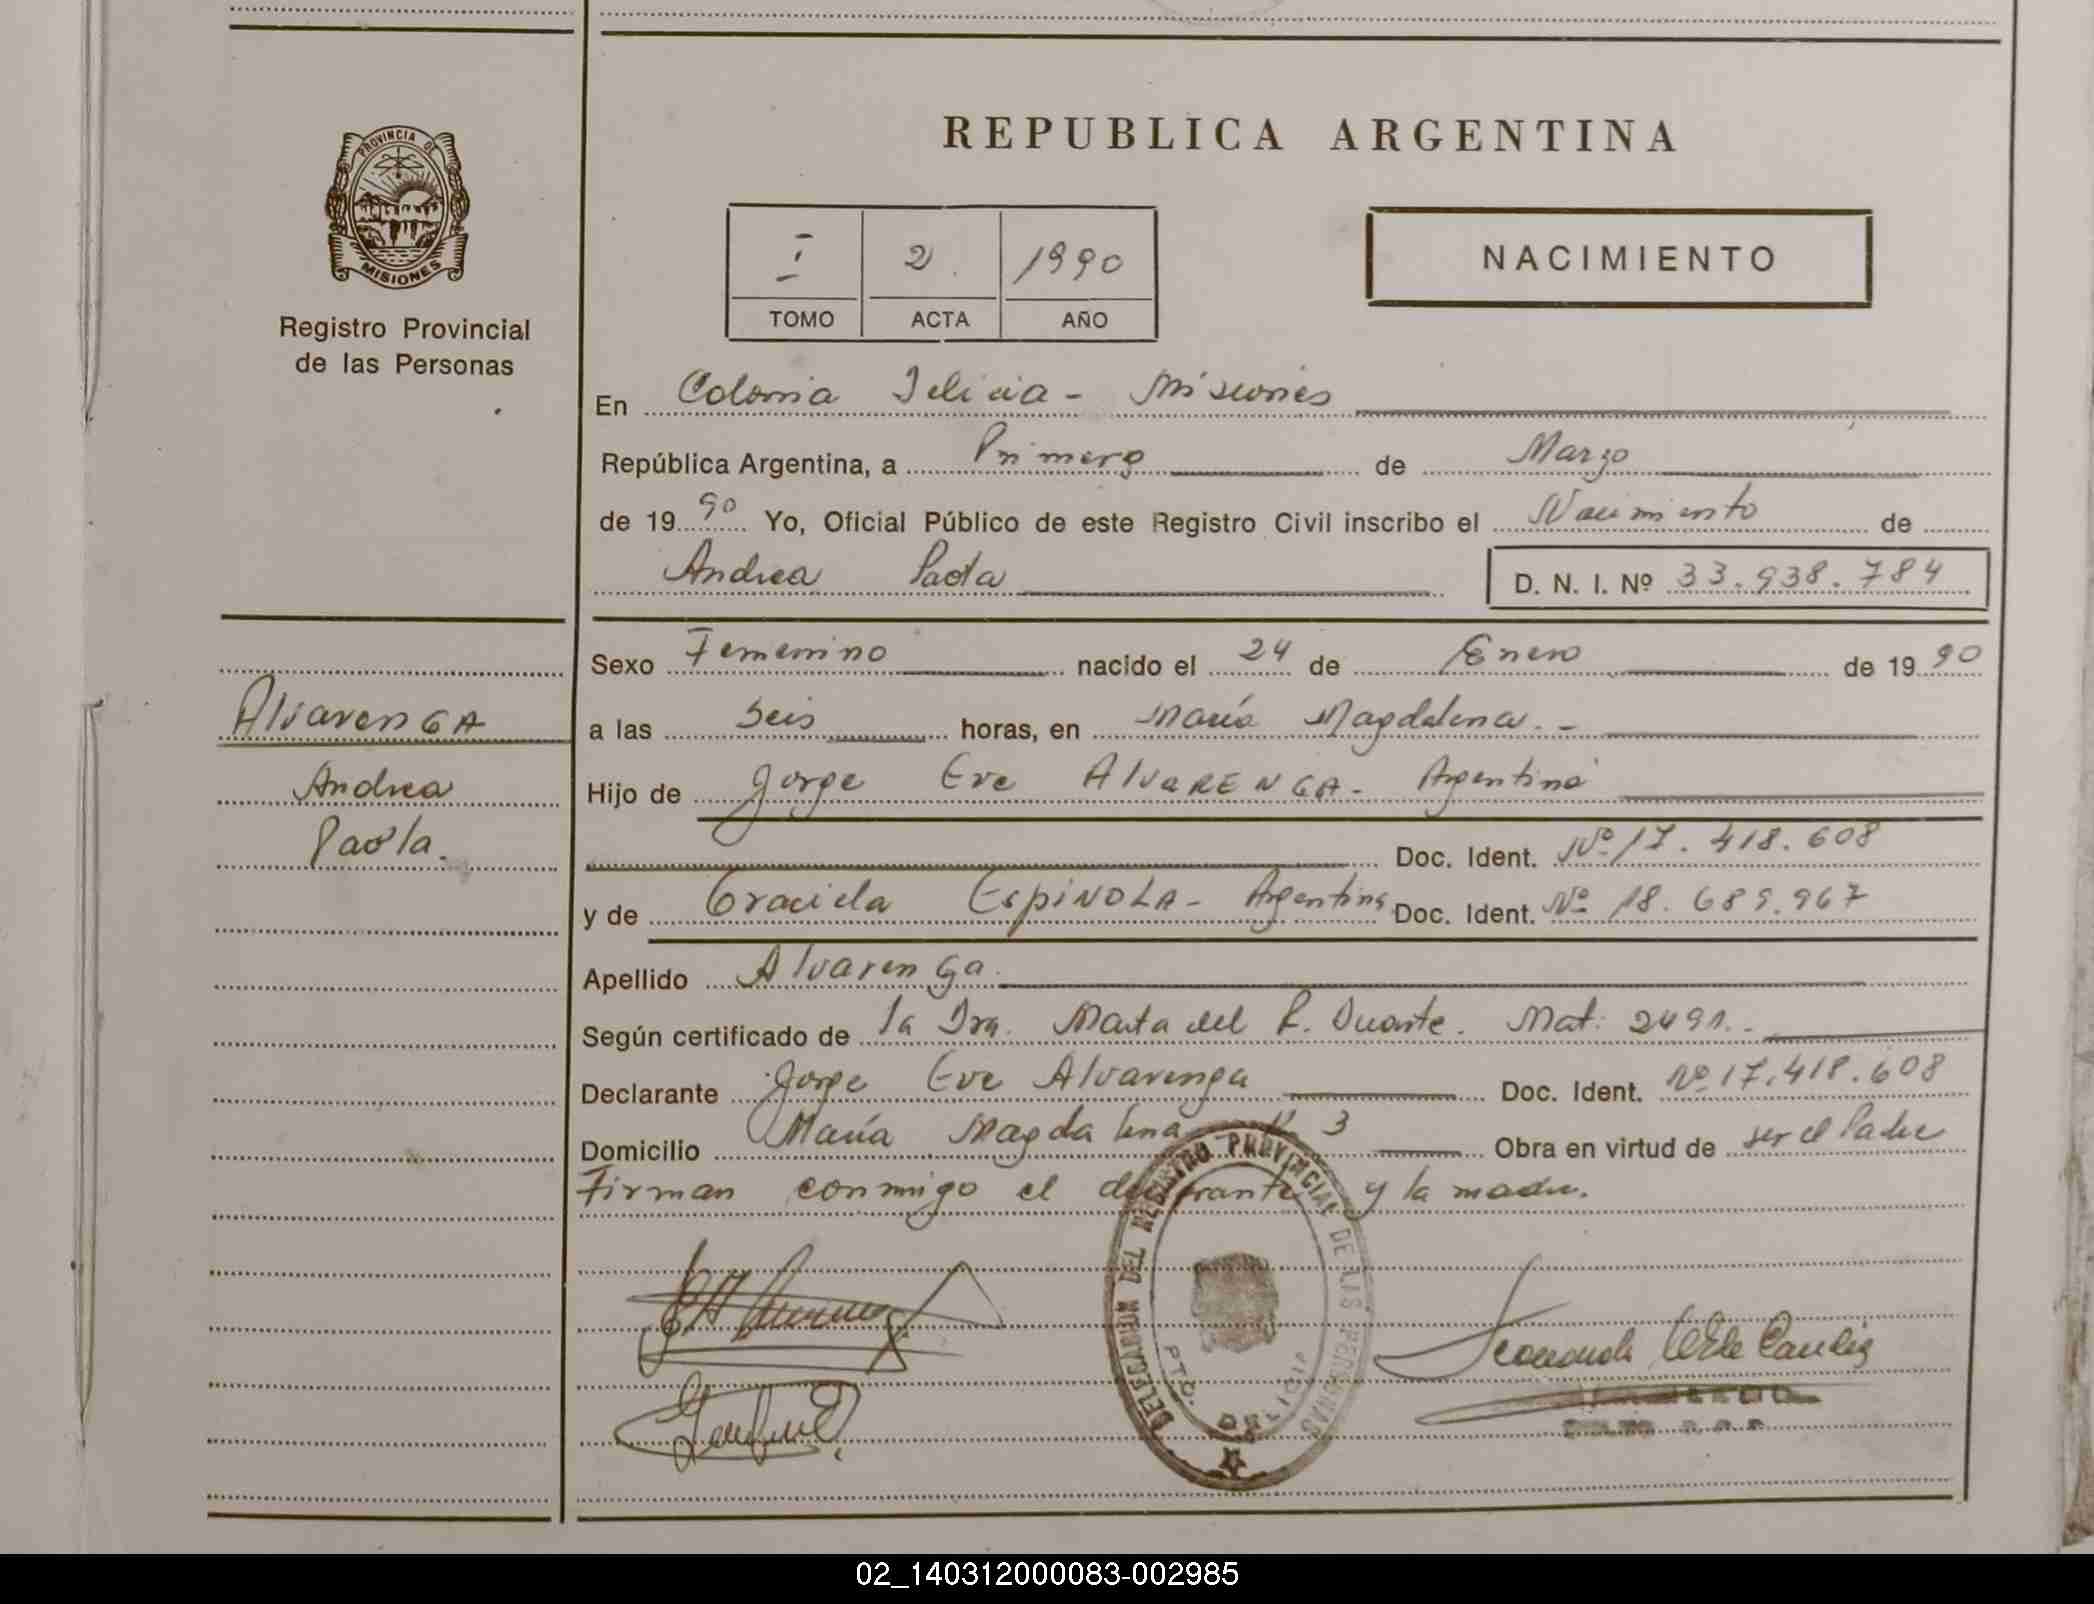 PROVINCIA DE
MISIONES
Registro Provincial
de las Personas
REPUBLICA ARGENTINA
I 2. 1990
TOMO ACTA AÑO
NACIMIENTO
En Colonia Delicia - Misiones
República Argentina, a Primero de Marzo
de 1990 Yo, Oficial Público de este Registro Civil inscribo el Nacimiento de
Andrea Paola D. N. I. Nº 33.938.784
Sexo Femenino nacido el 24 de Enero de 1990
Alvarenga
Andrea
Paola.
a las Seis horas, en María Magdalena. -
Hijo de Jorge Eve ALVARENGA - Argentino
Doc. Ident. Nº 17.418.608
y de Graciela ESPINOLA - Argentina Doc. Ident. Nº 18.689.967
Apellido Alvarenga.
Según certificado de la Dra. Marta del R. Duarte. Mat: 2491.
Declarante Jorge Eve Alvarenga Doc. Ident. Nº 17.418.608
Domicilio María Magdalena 3 Obra en virtud de ser el Padre
Firman conmigo el declarante y la madre.
DELEGACION DEL REGISTRO PROVINCIAL DE LAS PERSONAS
PTO. DELICIA
02_140312000083-002985